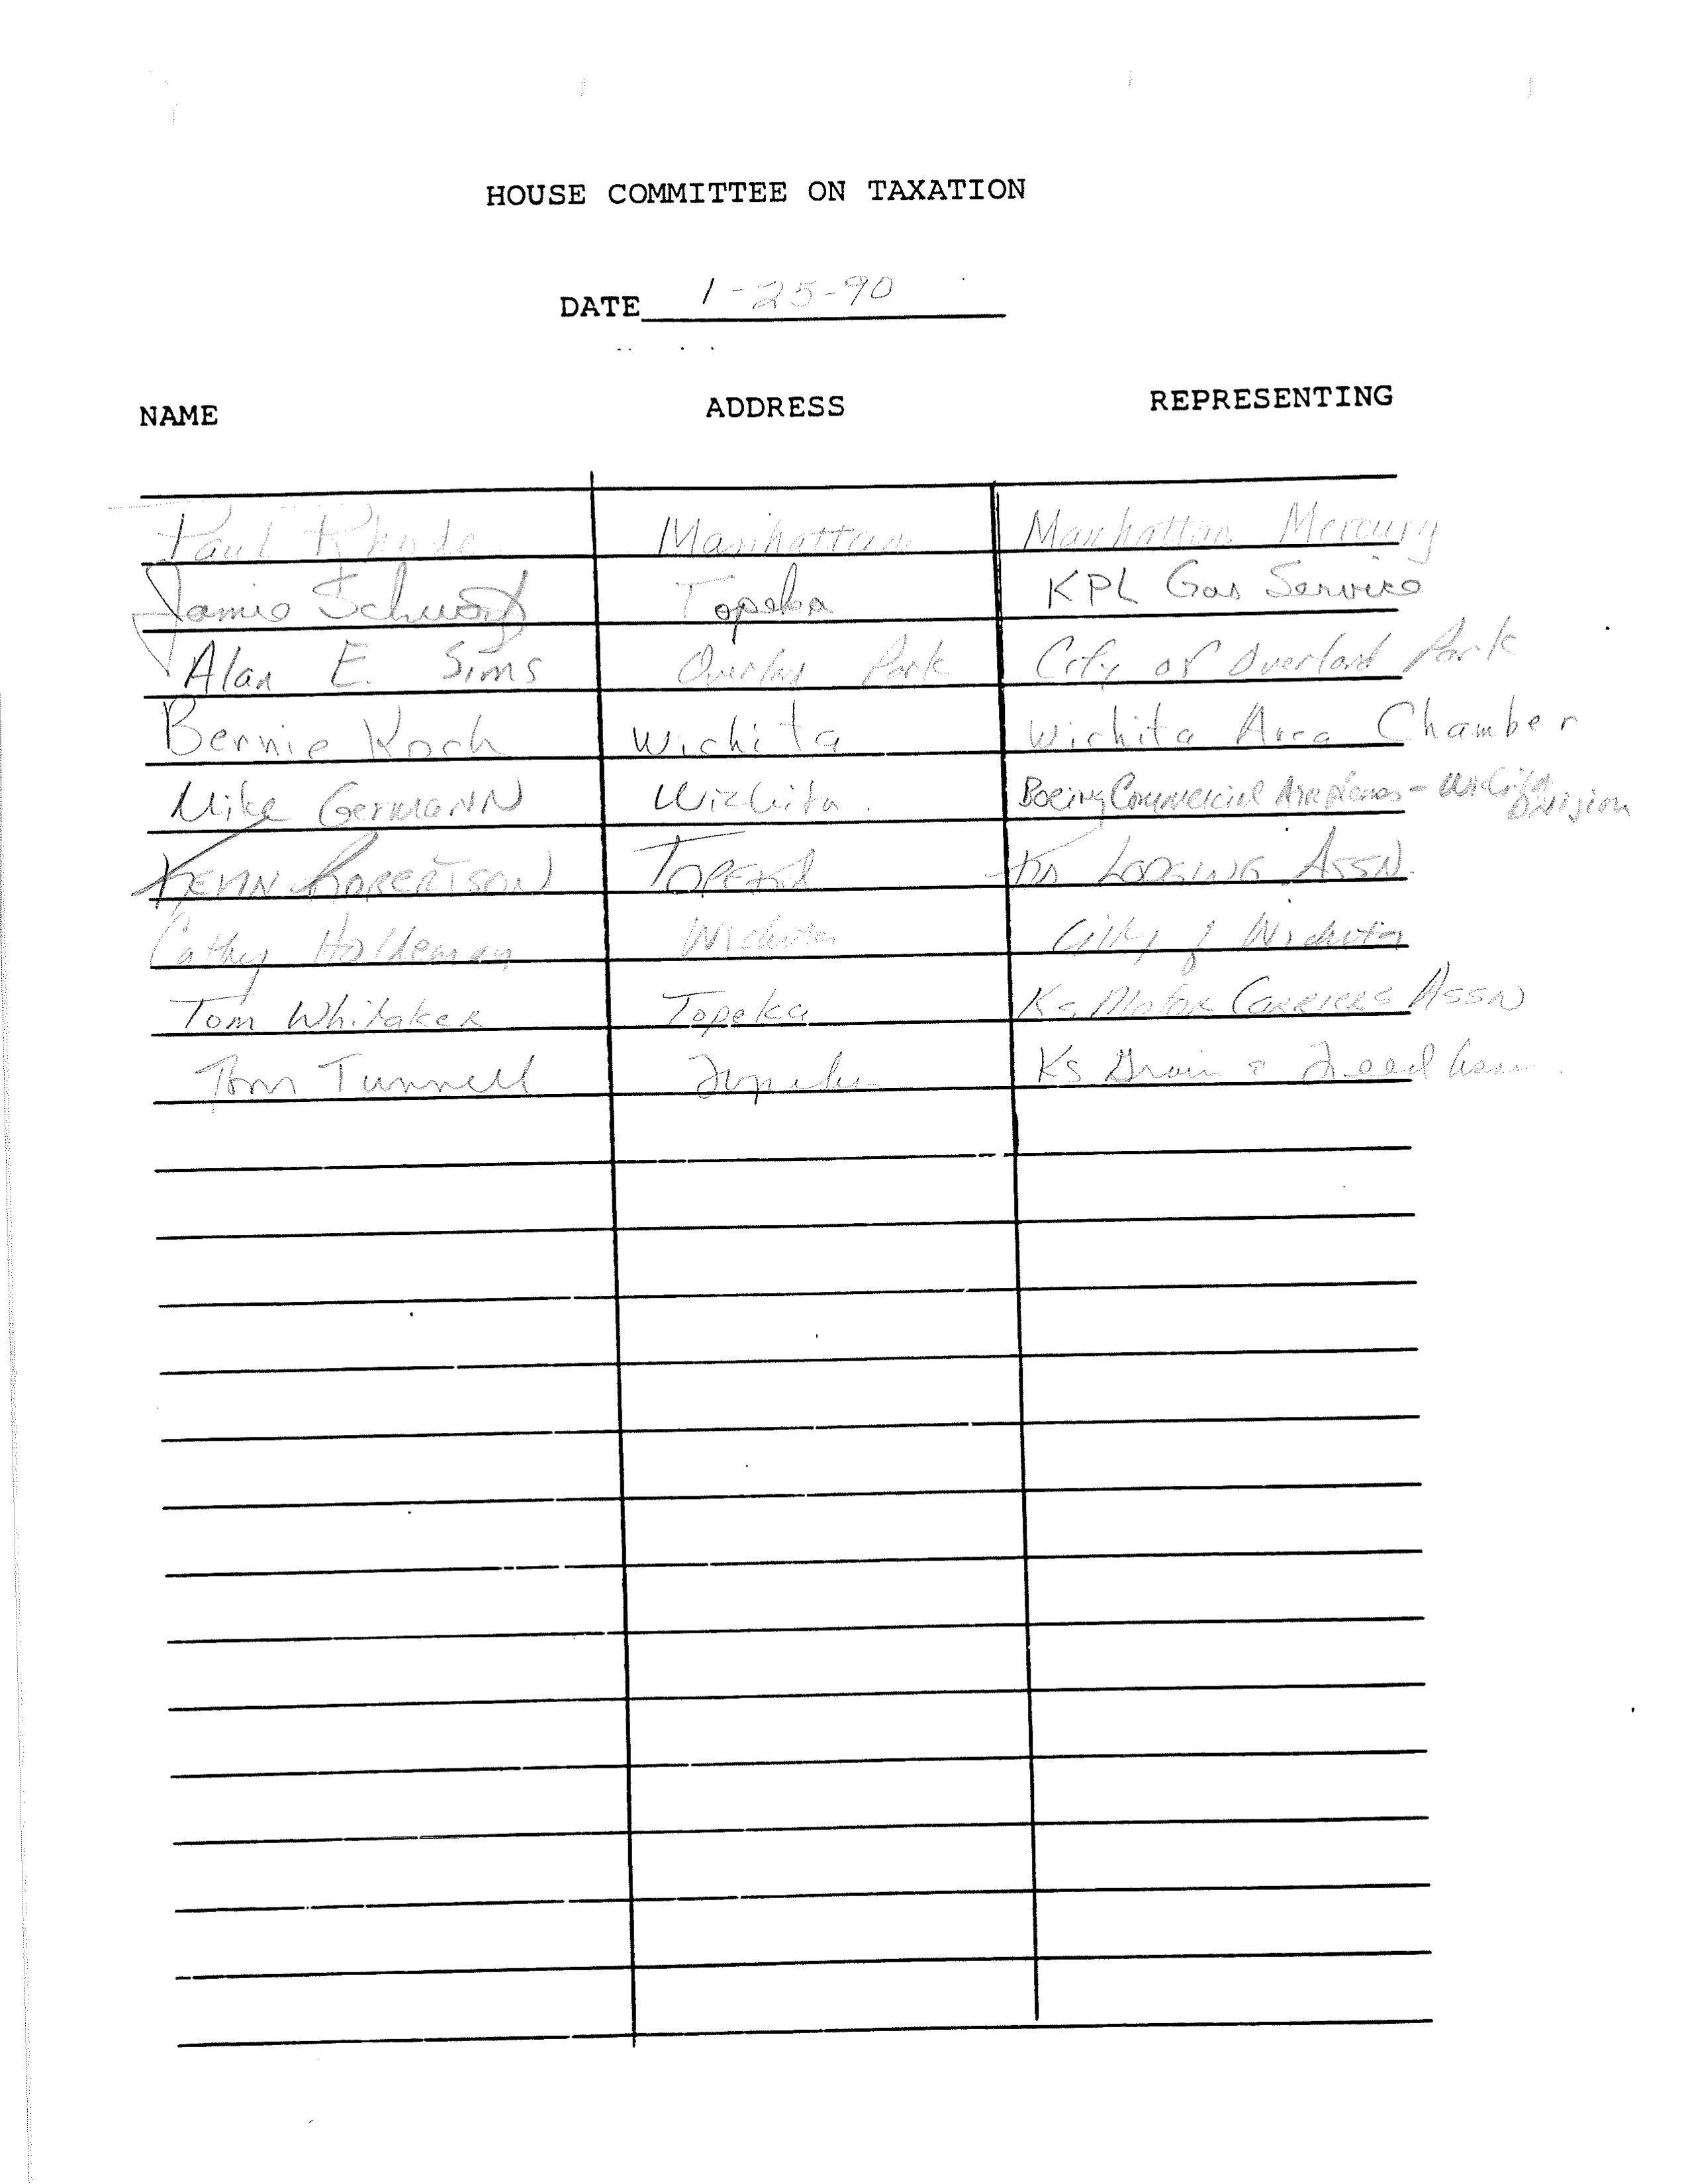 HOUSE COMMITTEE ON TAXATION
DATE 1-25-90
NAME ADDRESS REPRESENTING
Paul Manhattan Manhattan Mercury
Jamie Schwartz Topeka KPL Gas Service
Alan E. Sims Overland Park City of Overland Park
Bernie Koch Wichita Wichita Area Chamber
Mike Germann Wichita. Boeing Commercial Airplanes - Wichita
Division
KEVIN ROBERTSON TOPEKA Ks LODGING ASSN.
Cathy Holdeman Wichita City of Wichita
Tom Whitaker Topeka Ks. Motor Carriers Assn
Tom Tunnell Topeka Ks Grain & Feed Assn.